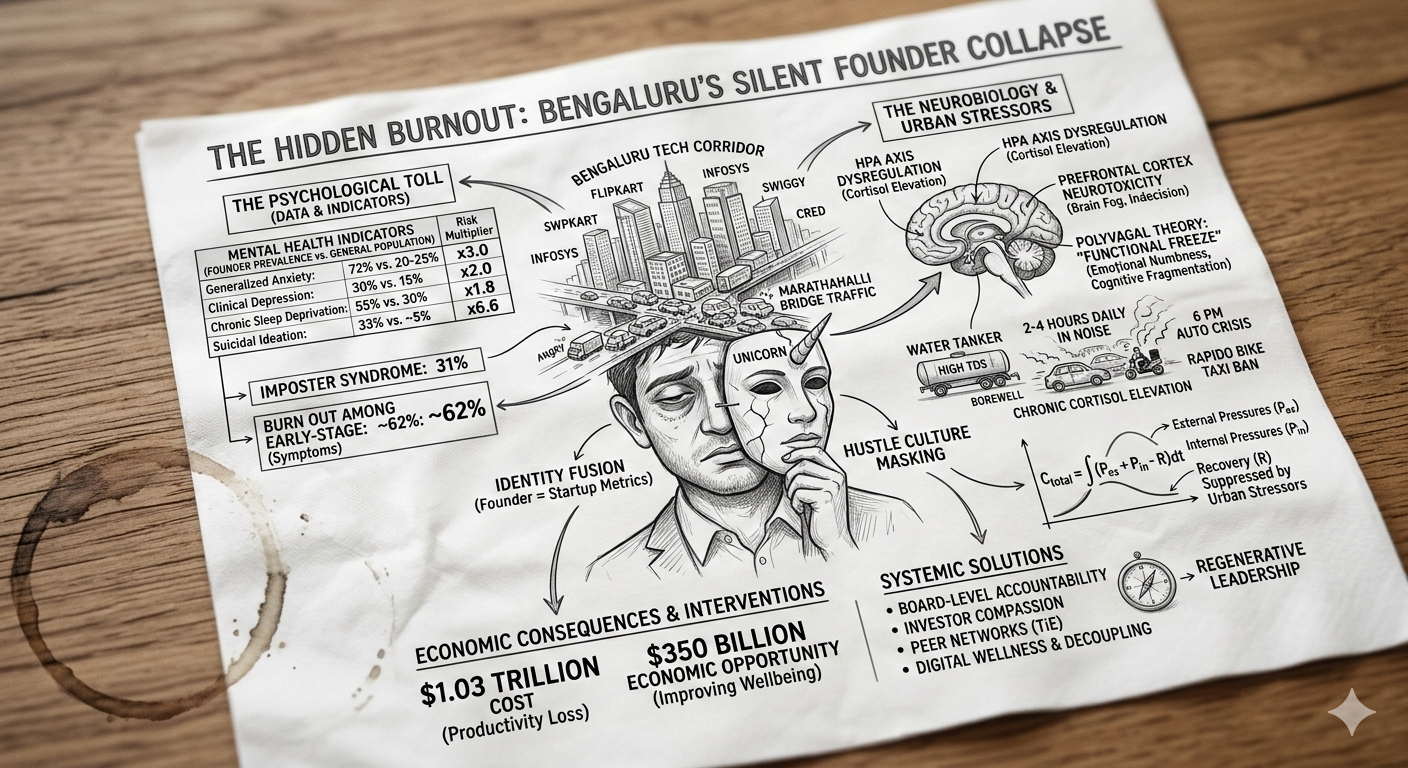 THE HIDDEN BURNOUT: BENGALURU'S SILENT FOUNDER COLLAPSE
THE PSYCHOLOGICAL TOLL
(DATA & INDICATORS)
MENTAL HEALTH INDICATORS
(FOUNDER PREVALENCE vs. GENERAL POPULATION)
Risk
Multiplier
Generalized Anxiety: 72% vs. 20-25% x3.0
Clinical Depression: 30% vs. 15% x2.0
Chronic Sleep Deprivation: 55% vs. 30% x1.8
Suicidal Ideation: 33% vs. ~5% x6.6
IMPOSTER SYNDROME: 31%
BURN OUT AMONG
EARLY-STAGE: ~62%: ~62%
(Symptoms)
BENGALURU TECH CORRIDOR
FLIPKART
INFOSYS
SWIGGY
SWPKART
CRED
INFOSYS
MARATHAHALLI
BRIDGE TRAFFIC
ANGRY
UNICORN
IDENTITY FUSION
(Founder = Startup Metrics)
HUSTLE CULTURE
MASKING
THE NEUROBIOLOGY &
URBAN STRESSORS
HPA AXIS
DYSREGULATION
(Cortisol Elevation)
HPA AXIS DYSREGULATION
(Cortisol Elevation)
PREFRONTAL CORTEX
NEUROTOXICITY
(Brain Fog, Indecision)
POLYVAGAL THEORY:
"FUNCTIONAL FREEZE"
(Emotional Numbness,
Cognitive Fragmentation)
WATER TANKER
HIGH TDS
BOREWELL
2-4 HOURS DAILY
IN NOISE
6 PM
AUTO CRISIS
RAPIDO BIKE
TAXI BAN
CHRONIC CORTISOL ELEVATION
C_total = ∫(P_es + P_in - R)dt
External Pressures (P_es)
Internal Pressures (P_in)
Recovery (R)
Suppressed by
Urban Stressors
ECONOMIC CONSEQUENCES & INTERVENTIONS
$1.03 TRILLION
COST
(Productivity Loss)
$350 BILLION
ECONOMIC OPPORTUNITY
(Improving Wellbeing)
SYSTEMIC SOLUTIONS
• BOARD-LEVEL ACCOUNTABILITY
• INVESTOR COMPASSION
• PEER NETWORKS (TiE)
• DIGITAL WELLNESS & DECOUPLING
REGENERATIVE
LEADERSHIP